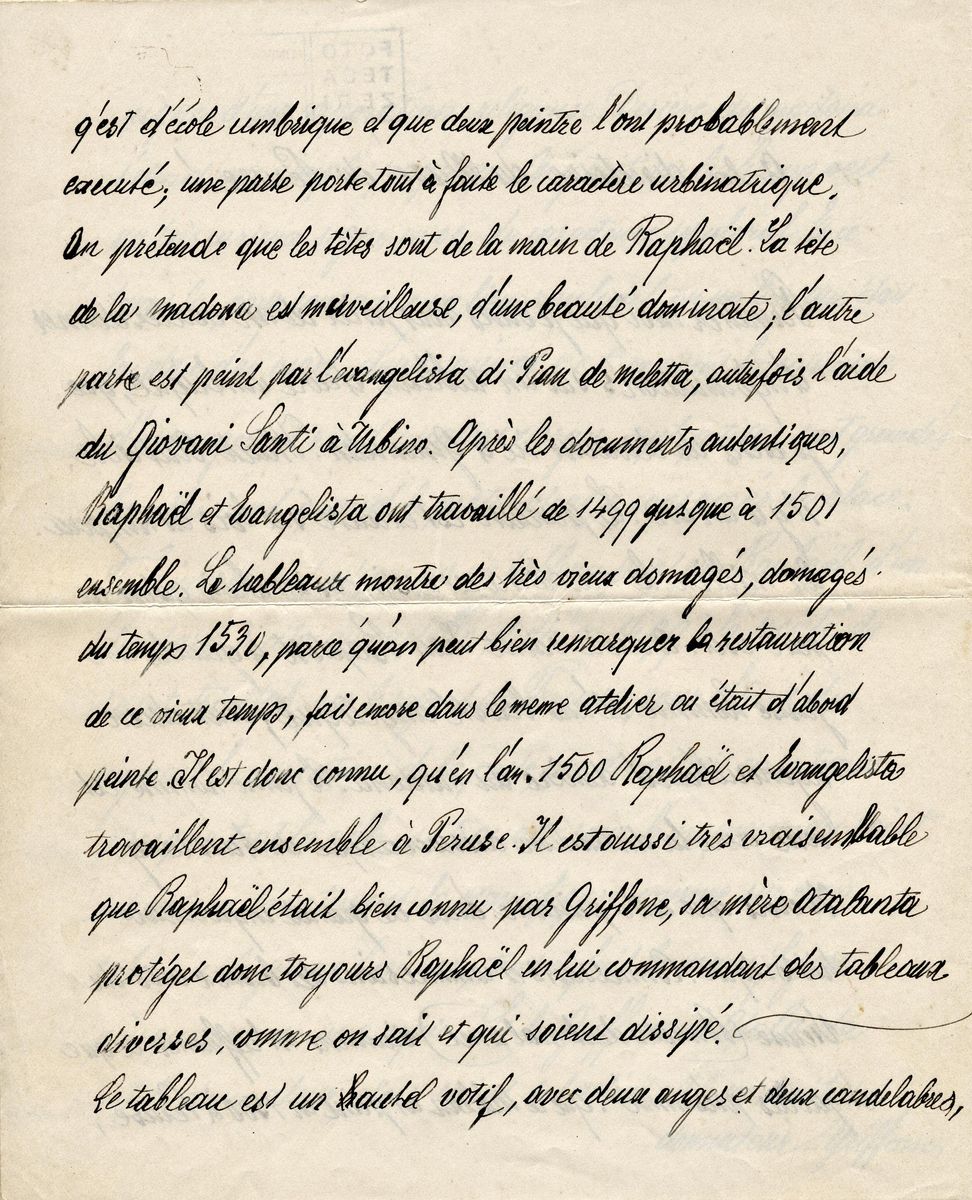 q'est d'école umbrique et que deux peintre l'ont probablement
executé; une parte porte tout à faite le caractère urbinatrique.
On prétende que les têtes sont de la main de Raphaël. La tête
de la madona est merveilleuse, d'une beauté dominate; l'autre
parte est peint par l'evangelista di Pian de meletta, autrefois l'aide
du Giovani Santi à Urbino. Après les documents autentiques,
Raphaël et Evangelista ont travaillé de 1499 jusque à 1501
ensemble. Le tableaux montre des très vieux domagés, domagés
du temps 1530, parce qu'on peut bien remarquer la restauration
de ce vieux temps, fait encore dans le meme atelier ou était d'abord
peinte. Il est donc connu, qu'en l'an. 1500 Raphaël et Evangelista
travaillent ensemble à Peruse. Il est aussi très vraisemblable
que Raphaël était bien connu par Griffone, sa mère Atalanta
protéget donc toujours Raphaël en lui commandant des tableaux
diverses, comme on sait et qui soient dissipé.
Le tableau est un hautel votif, avec deux anges et deux candelabres,
FOTO
TECA
ZERI